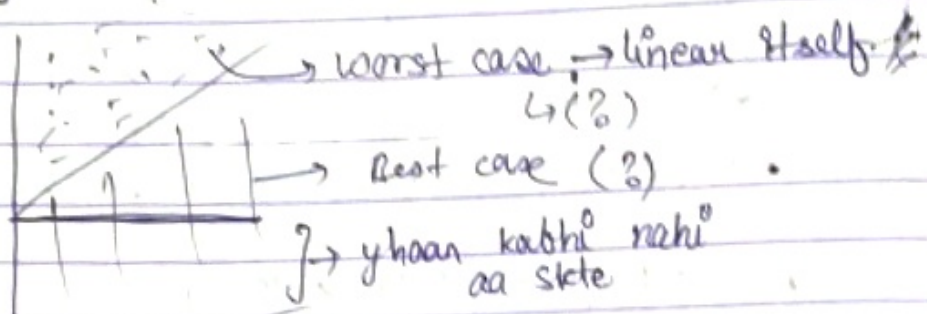 → worst case → linear itself.
↳ (?)
→ Best case (?)
} → yhaan kabhi nahi
aa skte